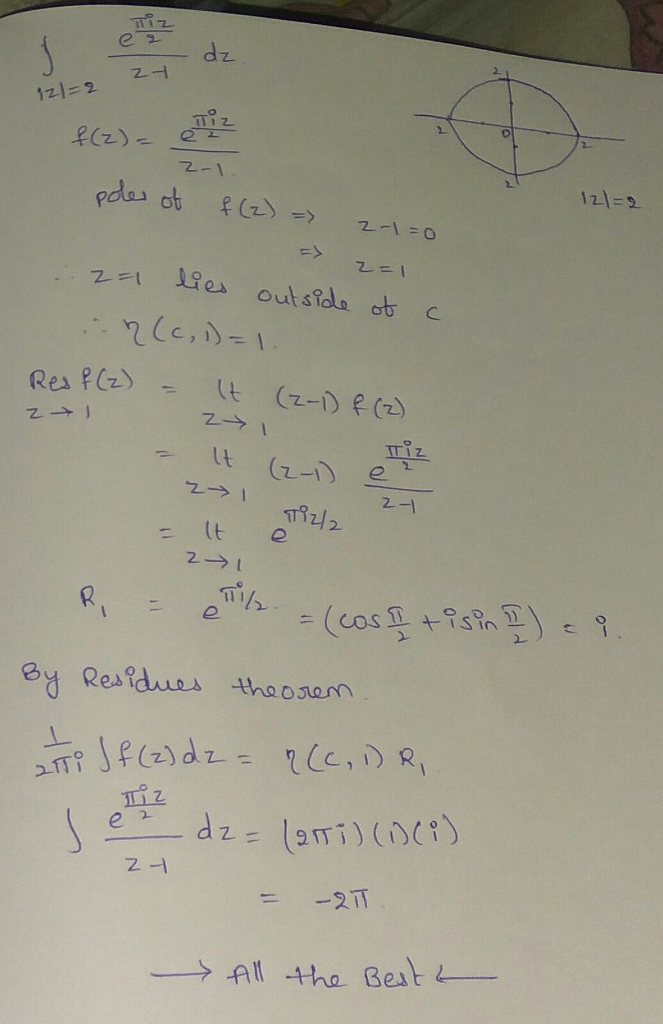 ∫ e^(πiz/2) / (z-1) dz
|z|=2
2
2 0 2
2
|z|=2
f(z) = e^(πiz/2) / (z-1).
poles of f(z) => z-1=0
=> z=1
∴ z=1 lies outside of c
∴ η(c,1)=1.
Res f(z) = lt (z-1) f(z)
z→1 z→1
= lt (z-1) e^(πiz/2) / (z-1)
z→1
= lt e^(πiz/2)
z→1
R₁ = e^(πi/2). = (cos π/2 + i sin π/2) = i.
By Residues theorem.
1/(2πi) ∫f(z)dz = η(c,1) R₁
∫ e^(πiz/2) / (z-1) dz = (2πi)(1)(i)
= -2π
→ All the Best ←